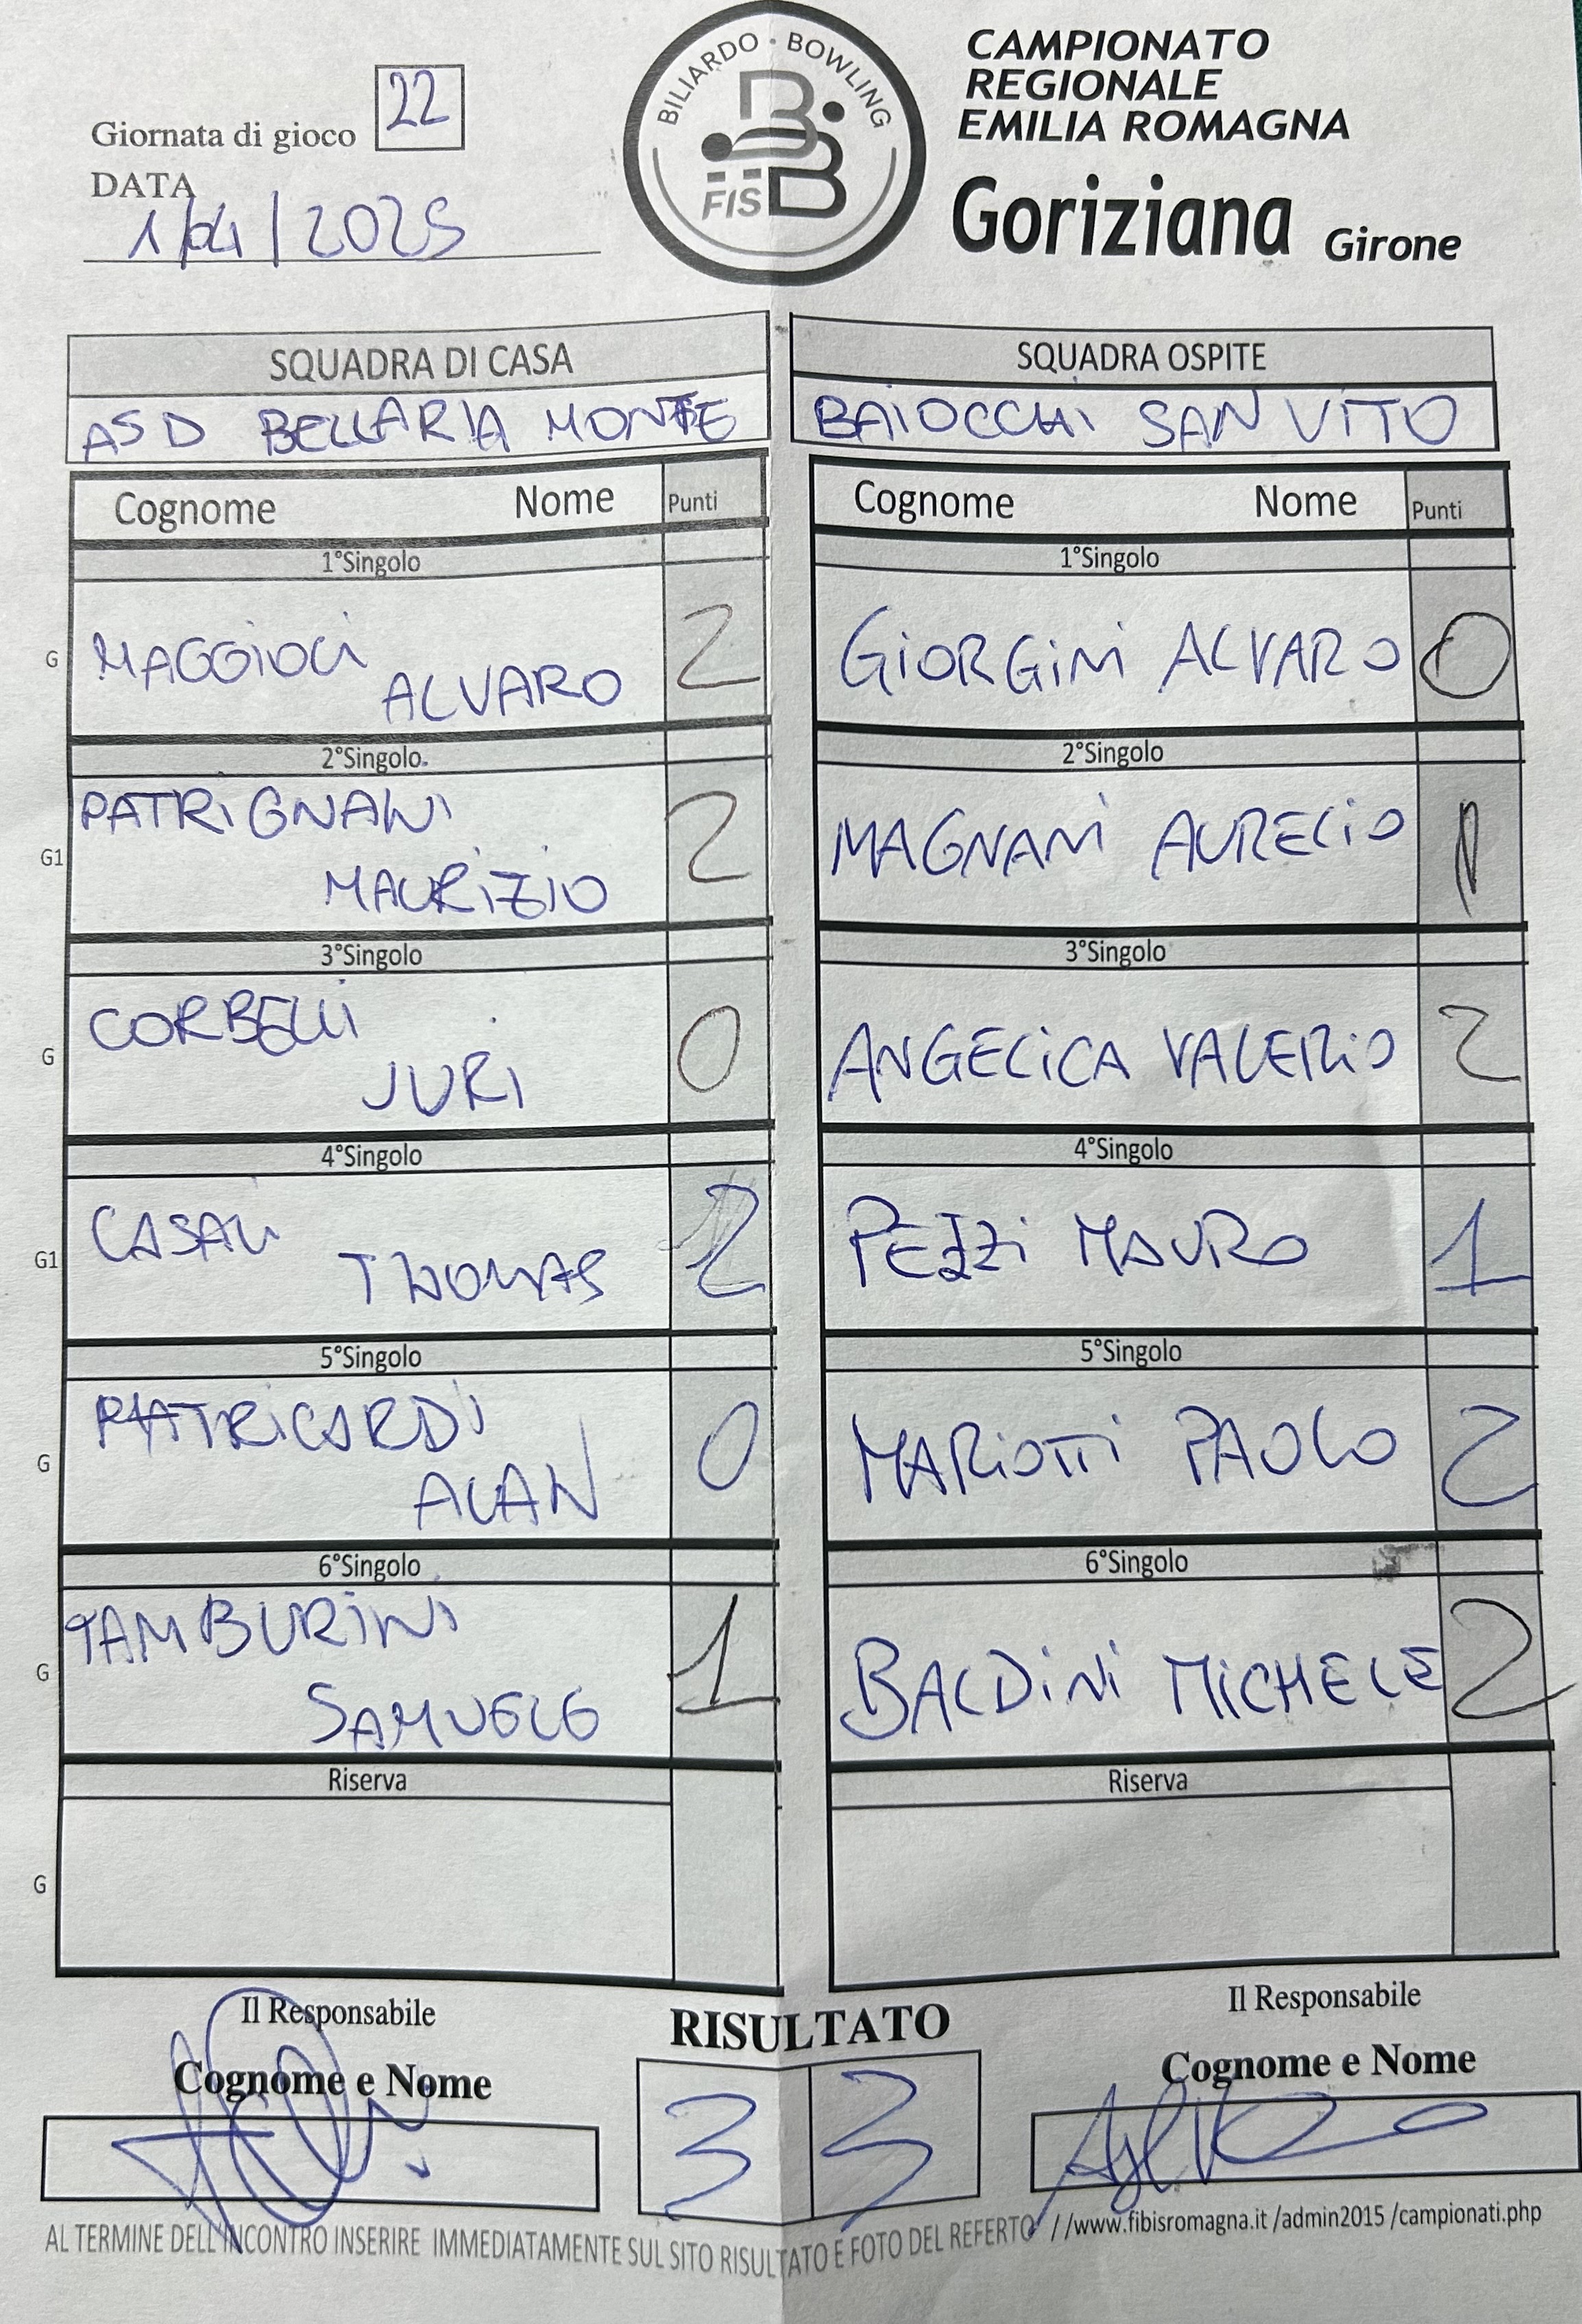 Giornata di gioco 22
DATA
1/04/2025
BILIARDO · BOWLING
FISBB
CAMPIONATO
REGIONALE
EMILIA ROMAGNA
Goriziana Girone
SQUADRA DI CASA
ASD BELLARIA MONTE
SQUADRA OSPITE
BAIOCCHI SAN VITO
Cognome Nome Punti
Cognome Nome Punti
1°Singolo
1°Singolo
G MAGGIOLI ALVARO 2
GIORGINI ALVARO 0
2°Singolo
2°Singolo
G1 PATRIGNANI MAURIZIO 2
MAGNANI AURELIO 1
3°Singolo
3°Singolo
G CORBELLI JURI 0
ANGELICA VALERIO 2
4°Singolo
4°Singolo
G1 CASALI THOMAS 2
PEZZI MAURO 1
5°Singolo
5°Singolo
G MATRICARDI ALAN 0
MARIOTTI PAOLO 2
6°Singolo
6°Singolo
G TAMBURINI SAMUELE 1
BALDINI MICHELE 2
Riserva
Riserva
G
Il Responsabile
Cognome e Nome
RISULTATO
3 3
Il Responsabile
Cognome e Nome
AL TERMINE DELL'INCONTRO INSERIRE IMMEDIATAMENTE SUL SITO RISULTATO E FOTO DEL REFERTO //www.fibisromagna.it /admin2015 /campionati.php